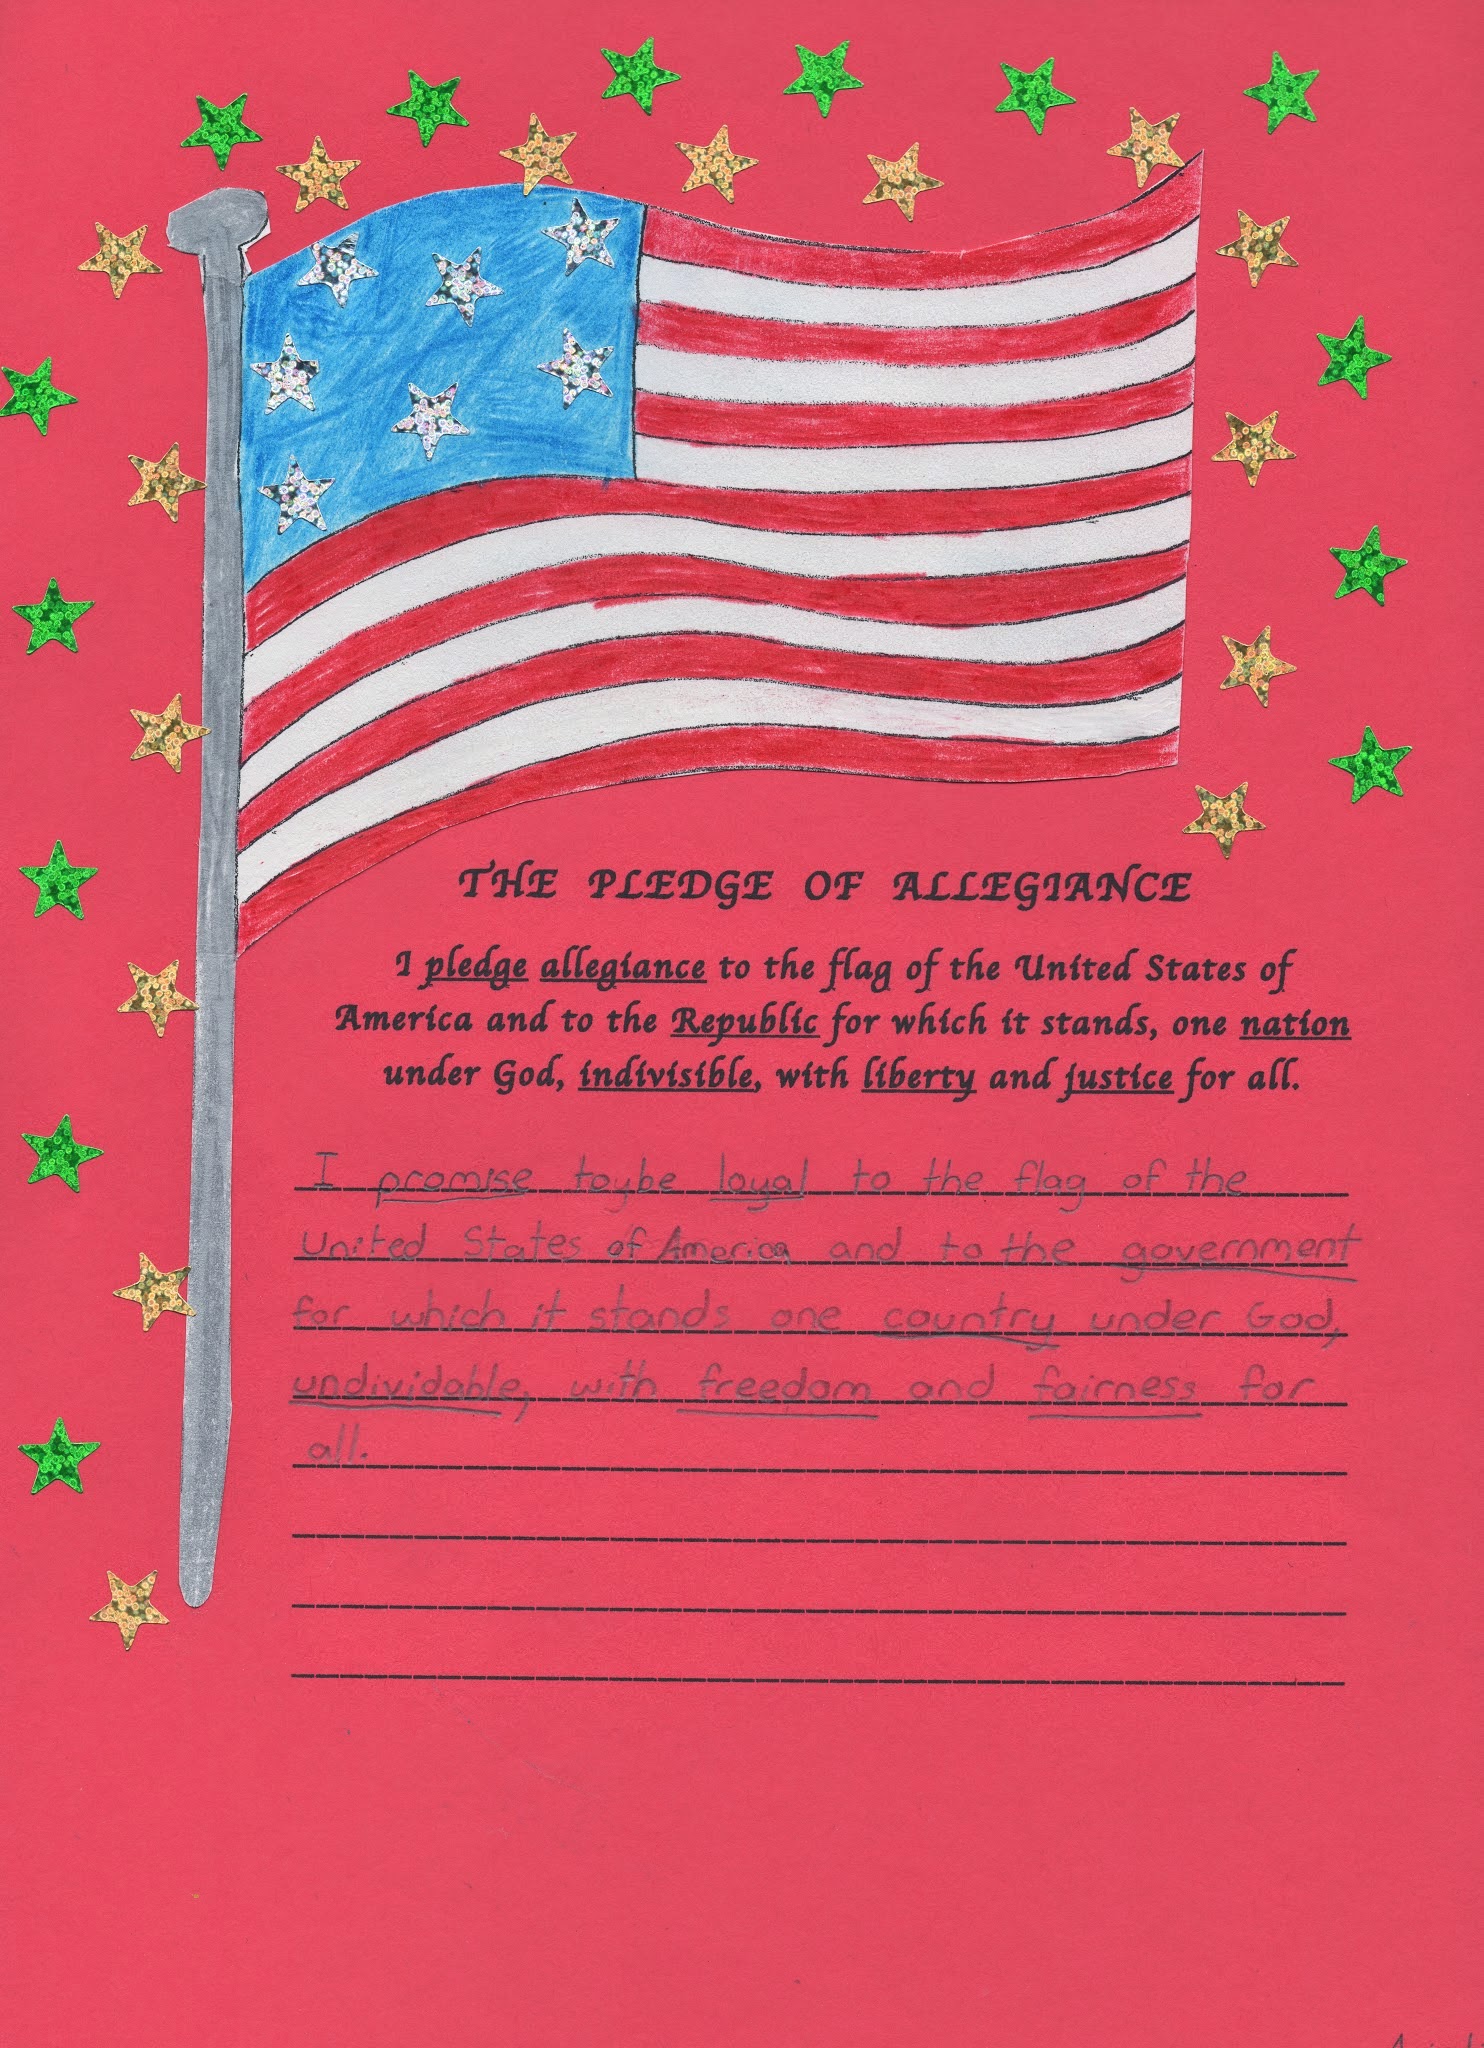 THE PLEDGE OF ALLEGIANCE
I pledge allegiance to the flag of the United States of
America and to the Republic for which it stands, one nation
under God, indivisible, with liberty and justice for all.
I promise toybe loyal to the flag of the
United States of America and to the government
for which it stands one country under God,
undividable, with freedom and fairness for
all.